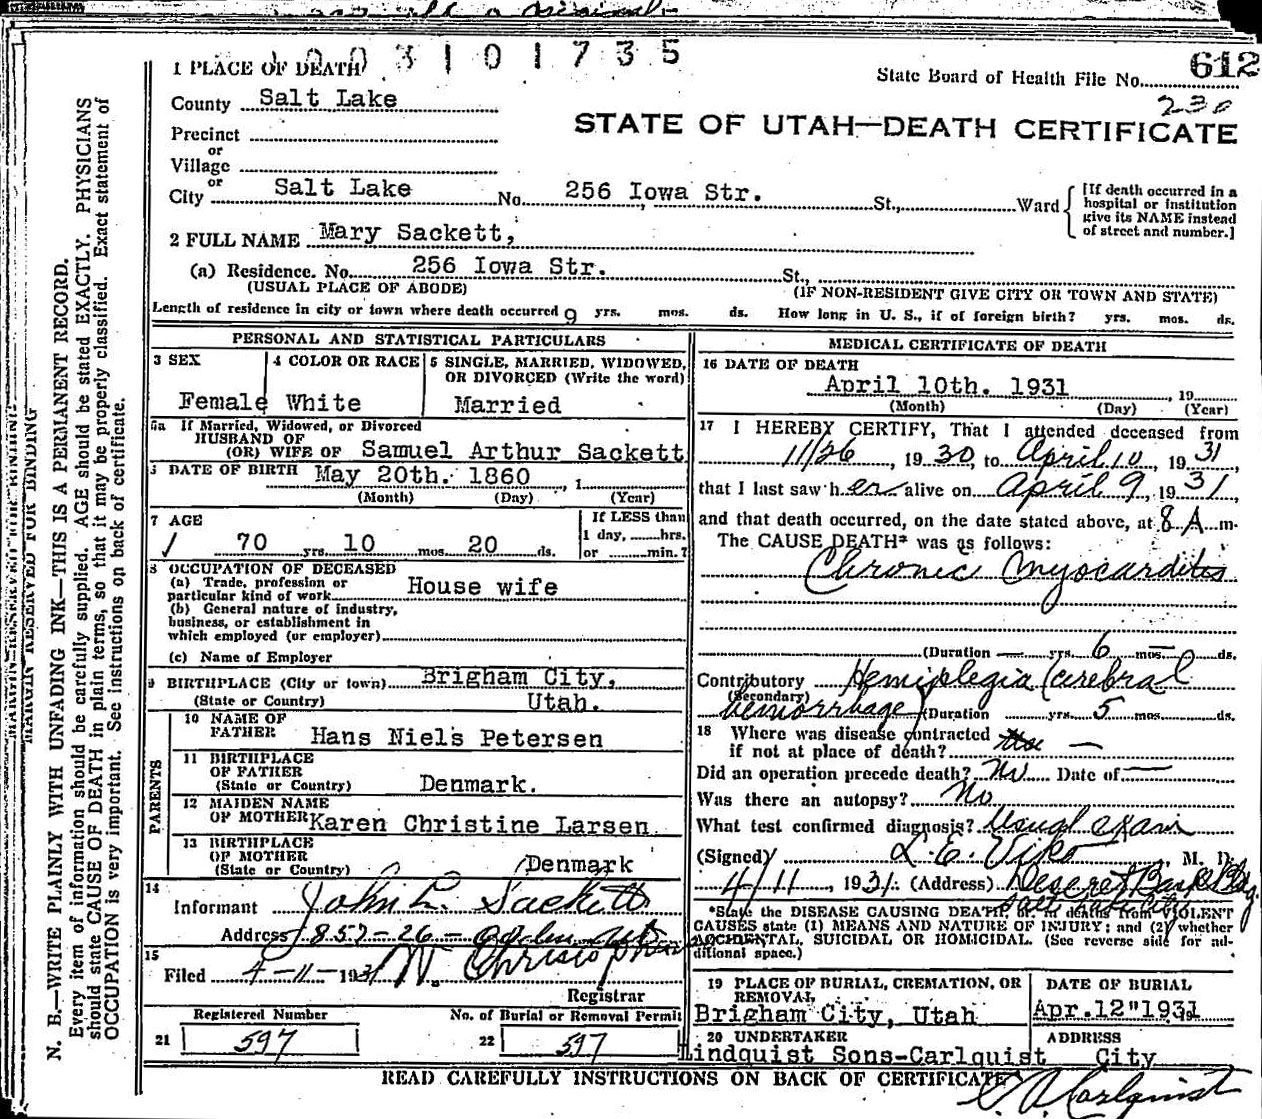 1003101735
612
State Board of Health File No.
230
STATE OF UTAH—DEATH CERTIFICATE
1 PLACE OF DEATH
County Salt Lake
Precinct
or
Village
or
City Salt Lake No. 256 Iowa Str. St., Ward
[If death occurred in a
hospital or institution
give its NAME instead
of street and number.]
2 FULL NAME Mary Sackett,
(a) Residence. No. 256 Iowa Str. St.,
(USUAL PLACE OF ABODE) (IF NON-RESIDENT GIVE CITY OR TOWN AND STATE)
Length of residence in city or town where death occurred 9 yrs. mos. ds. How long in U. S., if of foreign birth? yrs. mos. ds.
PERSONAL AND STATISTICAL PARTICULARS
3 SEX
Female
4 COLOR OR RACE
White
5 SINGLE, MARRIED, WIDOWED,
OR DIVORCED (Write the word)
Married
5a If Married, Widowed, or Divorced
HUSBAND OF
(OR) WIFE OF Samuel Arthur Sackett
6 DATE OF BIRTH May 20th. 1860, 1
(Month) (Day) (Year)
7 AGE
70 yrs. 10 mos. 20 ds.
If LESS than
1 day, hrs.
or min.?
8 OCCUPATION OF DECEASED
(a) Trade, profession or
particular kind of work House wife
(b) General nature of industry,
business, or establishment in
which employed (or employer)
(c) Name of Employer
9 BIRTHPLACE (City or town) Brigham City,
(State or Country) Utah.
PARENTS
10 NAME OF
FATHER Hans Niels Petersen
11 BIRTHPLACE
OF FATHER
(State or Country) Denmark.
12 MAIDEN NAME
OF MOTHER Karen Christine Larsen
13 BIRTHPLACE
OF MOTHER
(State or Country) Denmark
14
Informant John L. Sackett
Address 857-26- Ogden Utah
15
Filed 4-11-1931 W. Christopherson
Registrar
Registered Number
21 597
No. of Burial or Removal Permit
22 597
MEDICAL CERTIFICATE OF DEATH
16 DATE OF DEATH
April 10th. 1931, 19
(Month) (Day) (Year)
17 I HEREBY CERTIFY, That I attended deceased from
11/26, 1930, to April 10, 1931,
that I last saw her alive on April 9, 1931,
and that death occurred, on the date stated above, at 8 A m.
The CAUSE DEATH* was as follows:
Chronic Myocarditis
(Duration — yrs. 6 mos. — ds.
Contributory Hemiplegia (cerebral
(Secondary)
hemorrhage) (Duration yrs. 5 mos. ds.
18 Where was disease contracted
if not at place of death? —
Did an operation precede death? No Date of —
Was there an autopsy? No
What test confirmed diagnosis? Usual exam
(Signed) L. E. Viko, M. D.
4/11, 1931. (Address) Deseret Bank Bldg.
Salt Lake City
*State the DISEASE CAUSING DEATH, or, in deaths from VIOLENT
CAUSES state (1) MEANS AND NATURE OF INJURY; and (2) whether
ACCIDENTAL, SUICIDAL OR HOMICIDAL. (See reverse side for ad-
ditional space.)
19 PLACE OF BURIAL, CREMATION, OR
REMOVAL
Brigham City, Utah
DATE OF BURIAL
Apr. 12" 1931
20 UNDERTAKER
Lindquist Sons-Carlquist
ADDRESS
City
READ CAREFULLY INSTRUCTIONS ON BACK OF CERTIFICATE
Carlquist
MARGIN RESERVED FOR BINDING
N. B.—WRITE PLAINLY WITH UNFADING INK—THIS IS A PERMANENT RECORD.
Every item of information should be carefully supplied. AGE should be stated EXACTLY. PHYSICIANS
should state CAUSE OF DEATH in plain terms, so that it may be properly classified. Exact statement of
OCCUPATION is very important. See instructions on back of certificate.